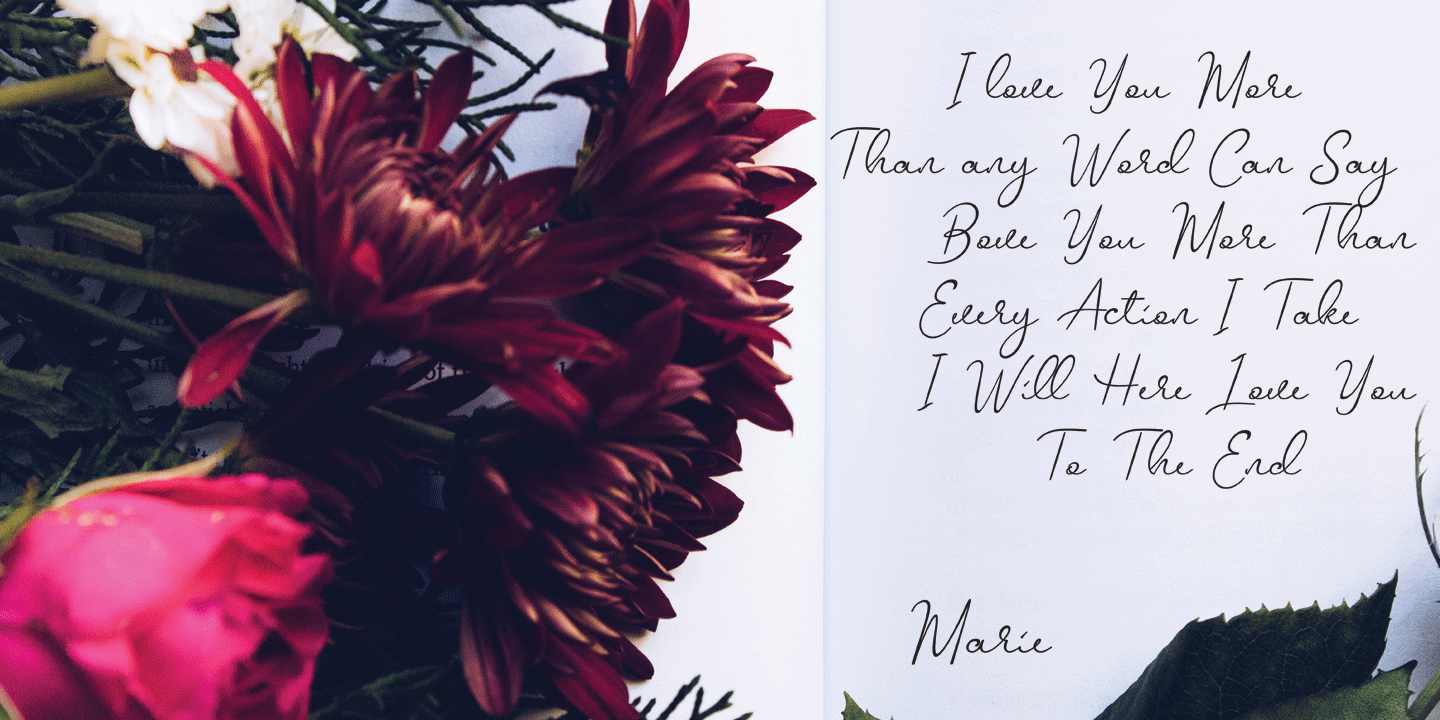 I love You More
Than any Word Can Say
Bove You More Than
Every Action I Take
I Will Here Love You
To The End
Marie